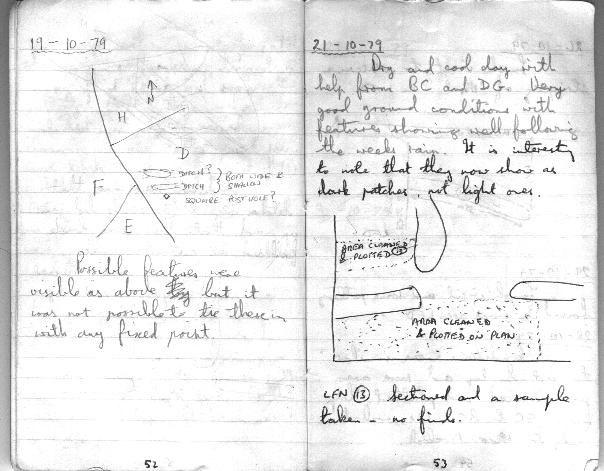 19-10-79
N
H
D
F
DITCH?
DITCH
BOTH WIDE &
SHALLOW
SQUARE POST HOLE?
E
Possible features were
visible as above but it
was not possible to tie these in
with any fixed point.
52
21-10-79
Dry and cool day with
help from BC and DG. Very
good ground conditions with
features showing well following
the weeks rain. It is interesting
to note that they now show as
dark patches, not light ones.
AREA CLEANED
& PLOTTED 13
AREA CLEANED
& PLOTTED ON PLAN
LFN 13 Sectioned and a sample
taken - no finds.
53